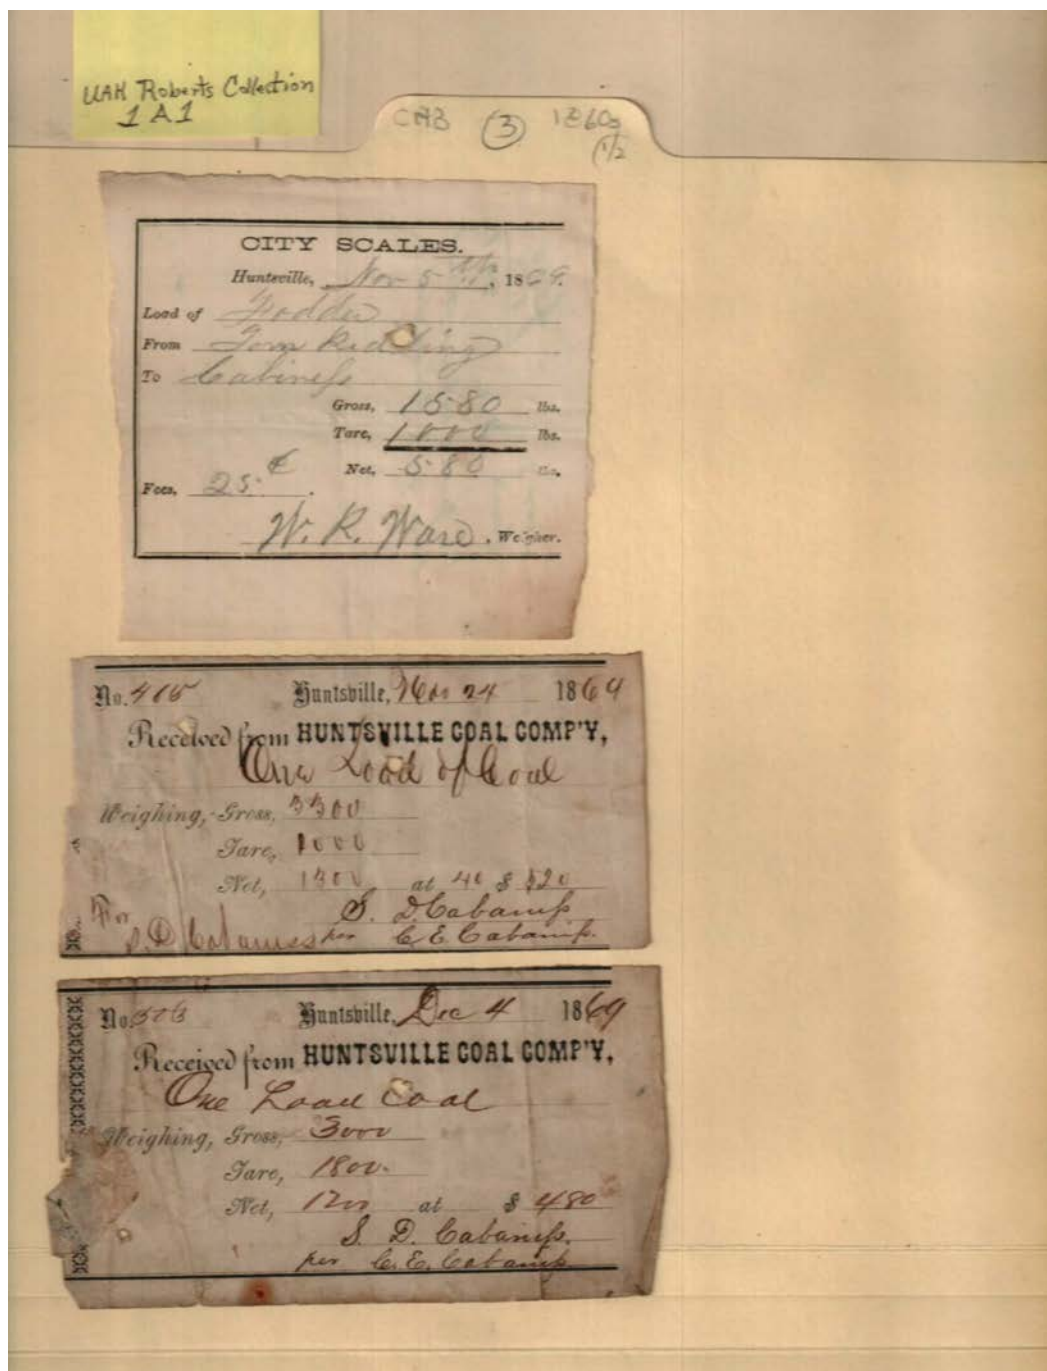 UAH Roberts Collection
1A1
CAB ③ 1860s
(1/2
CITY SCALES.
Huntsville, Nov 5th, 1869.
Load of Fodder
From Tom Redding
To Cabiness
Gross, 1580 lbs.
Tare, 1000 lbs.
Net, 580 lbs.
Fees, 25 ¢.
W. R. Ward. Weigher.
No. Huntsville, Nov 24 1869
Received from HUNTSVILLE COAL COMP'Y,
One Load of Coal
Weighing, Gross,
Tare,
Net, 1300 at 40 $ 520
S. D. Cabaniss
For
S. D. Cabaniss per C. E. Cabaniss.
No. Huntsville, Dec 4 1869
Received from HUNTSVILLE COAL COMP'Y,
One Load Coal
Weighing, Gross, 3000
Tare, 1800.
Net, 1200 at $ 480
S. D. Cabaniss.
per C. E. Cabaniss